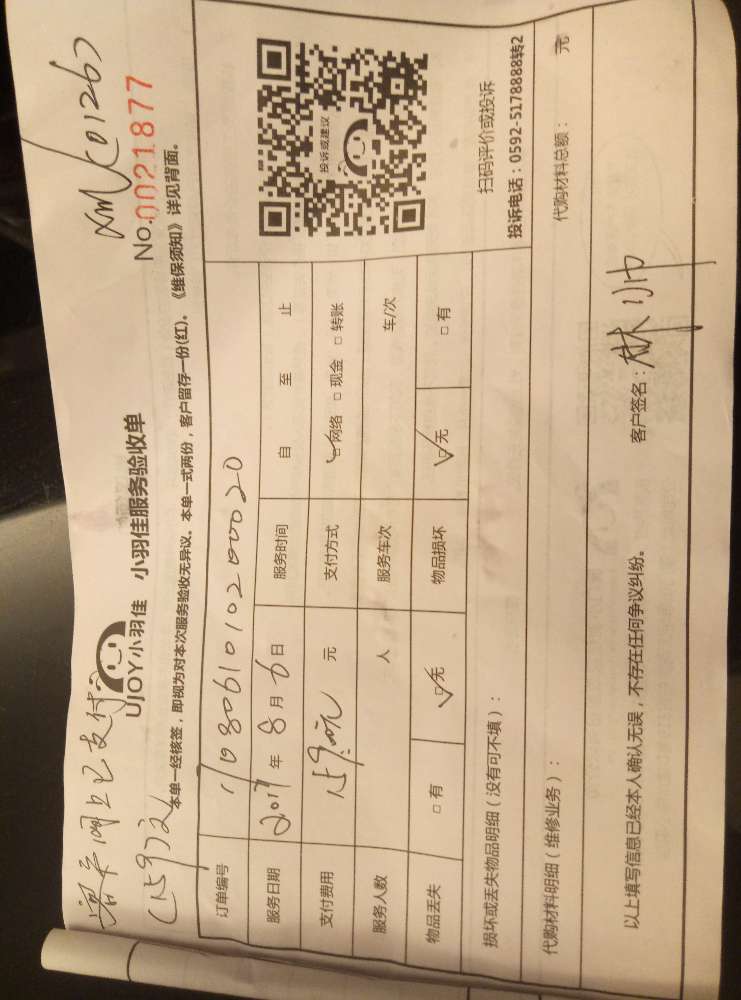 客户网上已支付
(159元)
XMJC01267
UJOY小羽佳 小羽佳服务验收单
No.0021877
本单一经核签，即视为对本次服务验收无异议。本单一式两份，客户留存一份(红)。《维保须知》详见背面。
订单编号
服务日期 2017 年 8 月 6 日 服务时间 自 至 止
支付费用 159.00元 元 支付方式 ☑网络 □现金 □转账
服务人数 人 服务车次 车/次
物品丢失 □有 ☑无 物品损坏 ☑无 □有
投诉或建议
扫码评价或投诉
投诉电话：0592-5178888转2
损坏或丢失物品明细（没有可不填）：
代购材料明细（维修业务）： 代购材料总额： 元
以上填写信息已经本人确认无误，不存在任何争议纠纷。 客户签名：林